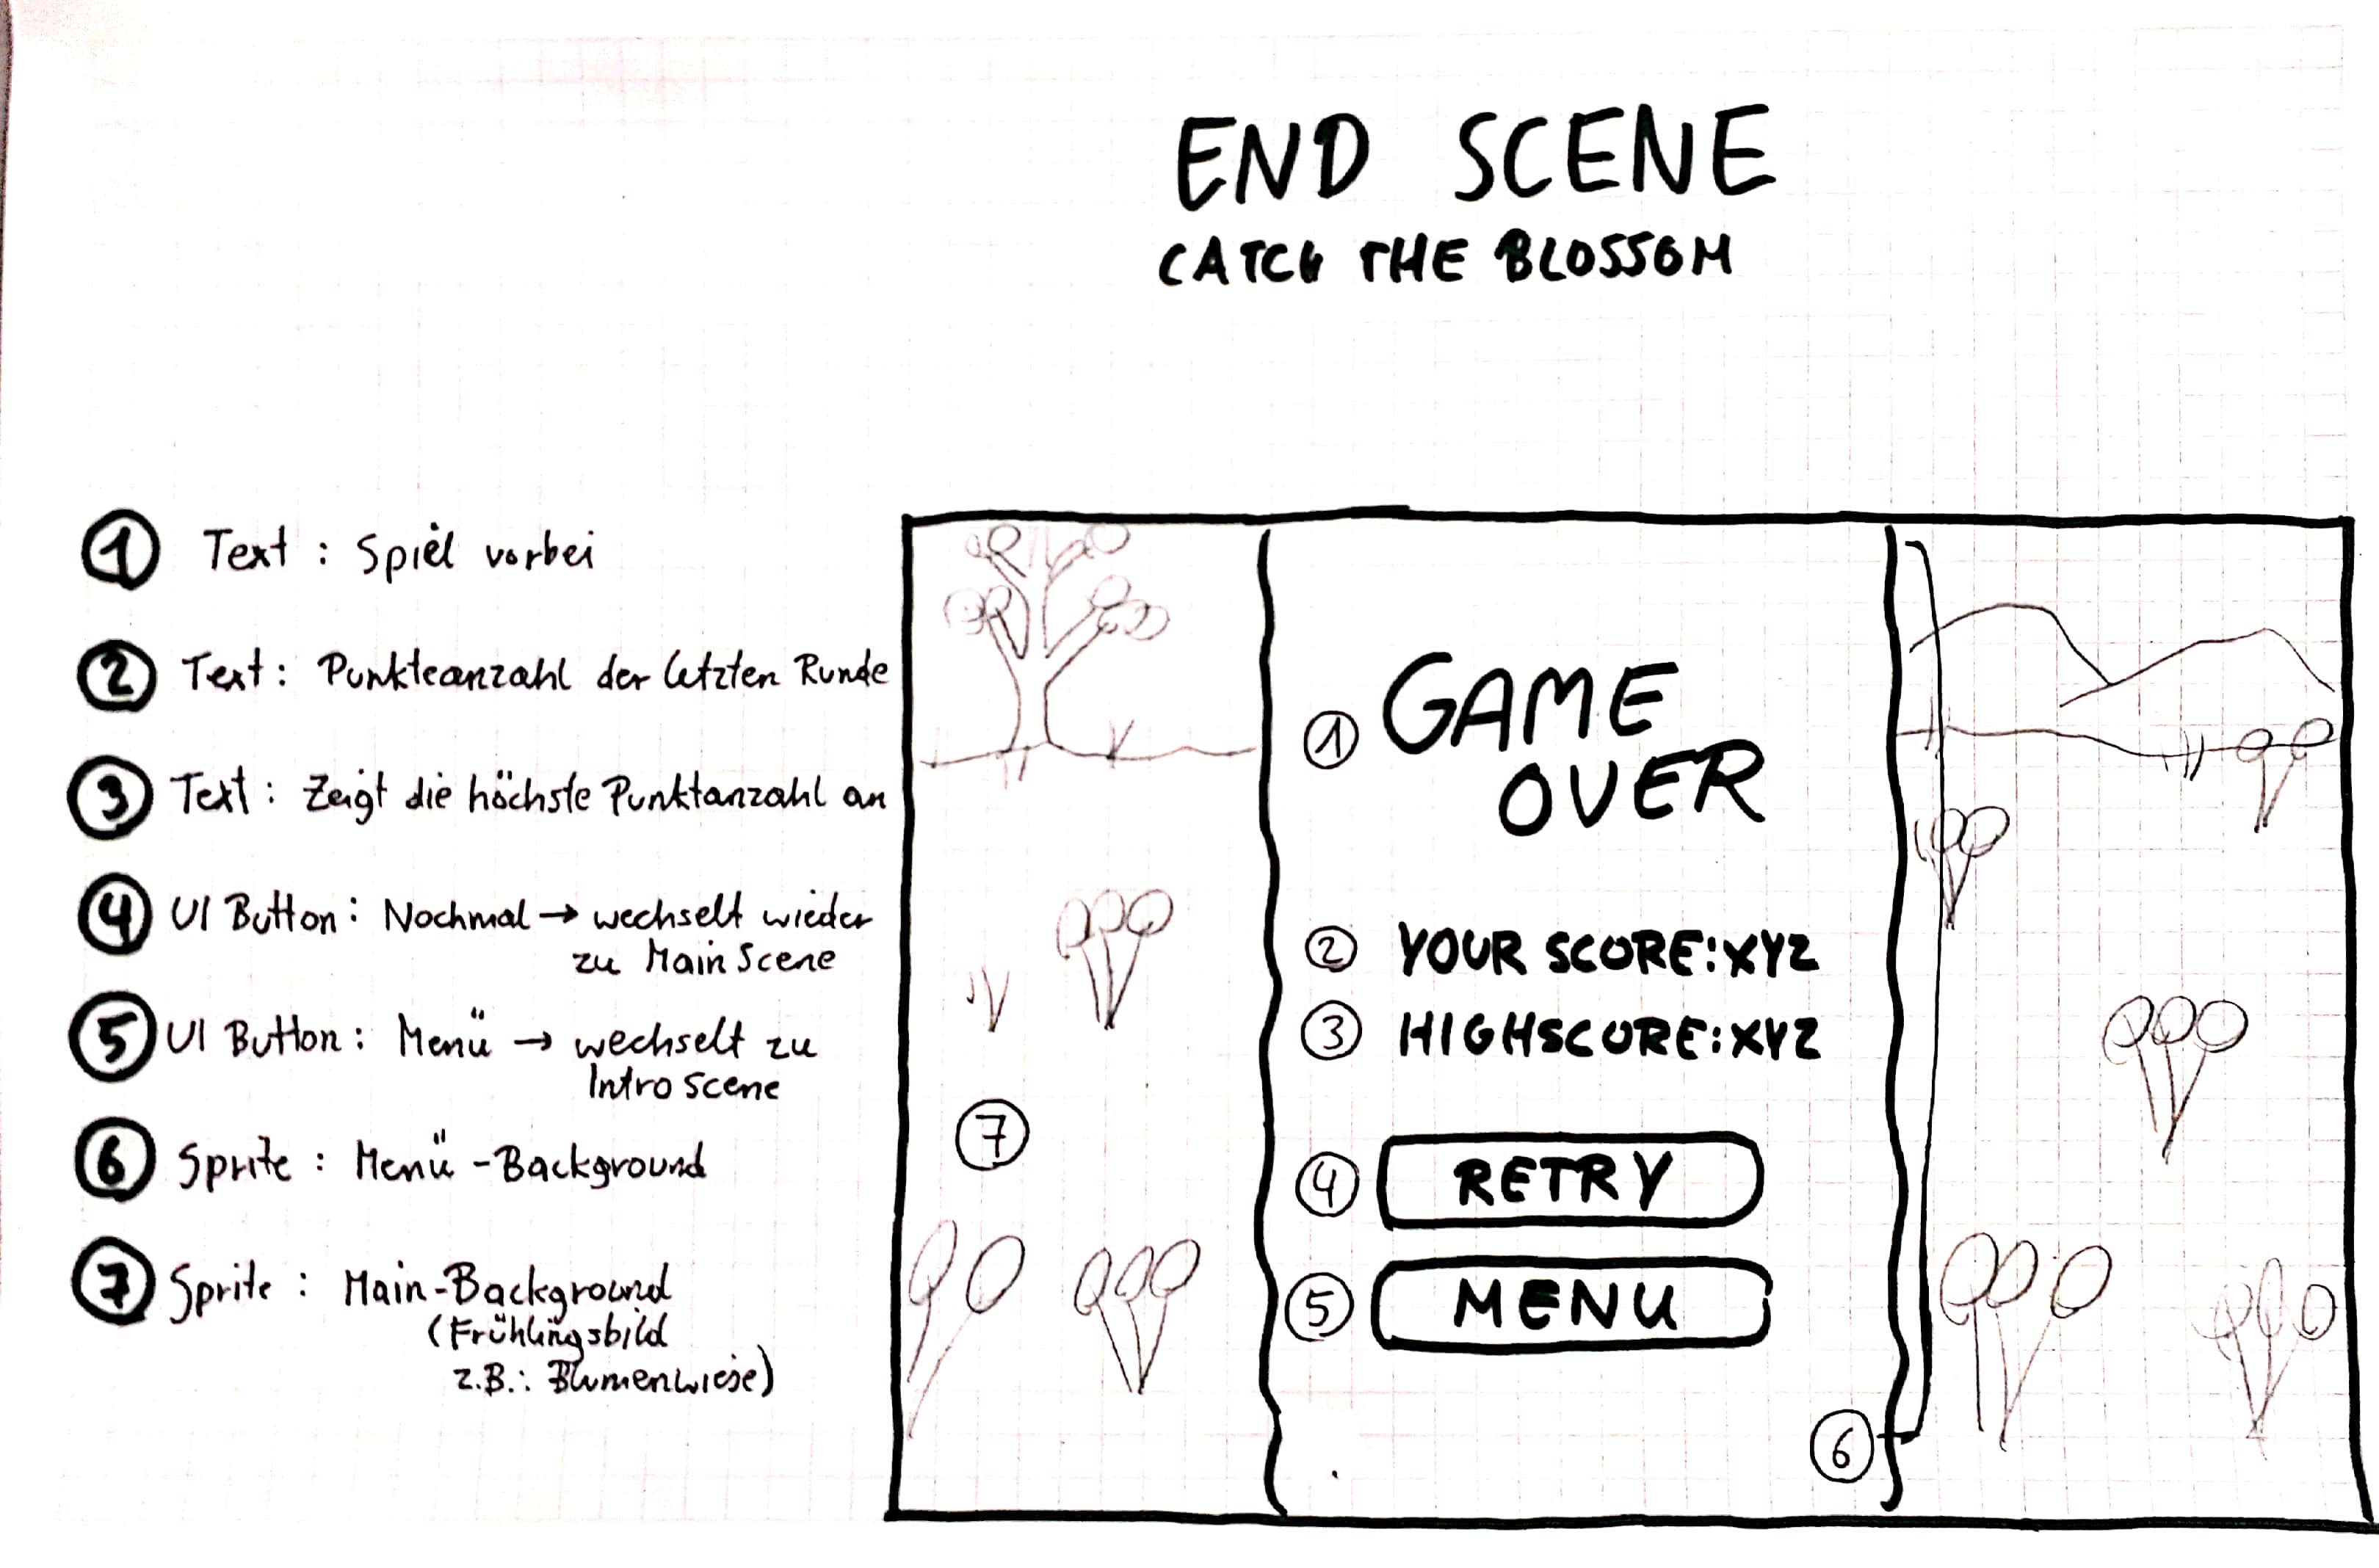 END SCENE
CATCH THE BLOSSOM
1 Text : Spiel vorbei
2 Text : Punkteanzahl der letzten Runde
3 Text : Zeigt die höchste Punktanzahl an
4 UI Button : Nochmal → wechselt wieder
zu Main Scene
5 UI Button : Menü → wechselt zu
Intro scene
6 Sprite : Menü - Background
7 Sprite : Main-Background
(Frühlingsbild
z.B.: Blumenwiese)
1 GAME
OVER
2 YOUR SCORE: XYZ
3 HIGHSCORE: XYZ
7
4 RETRY
5 MENU
6